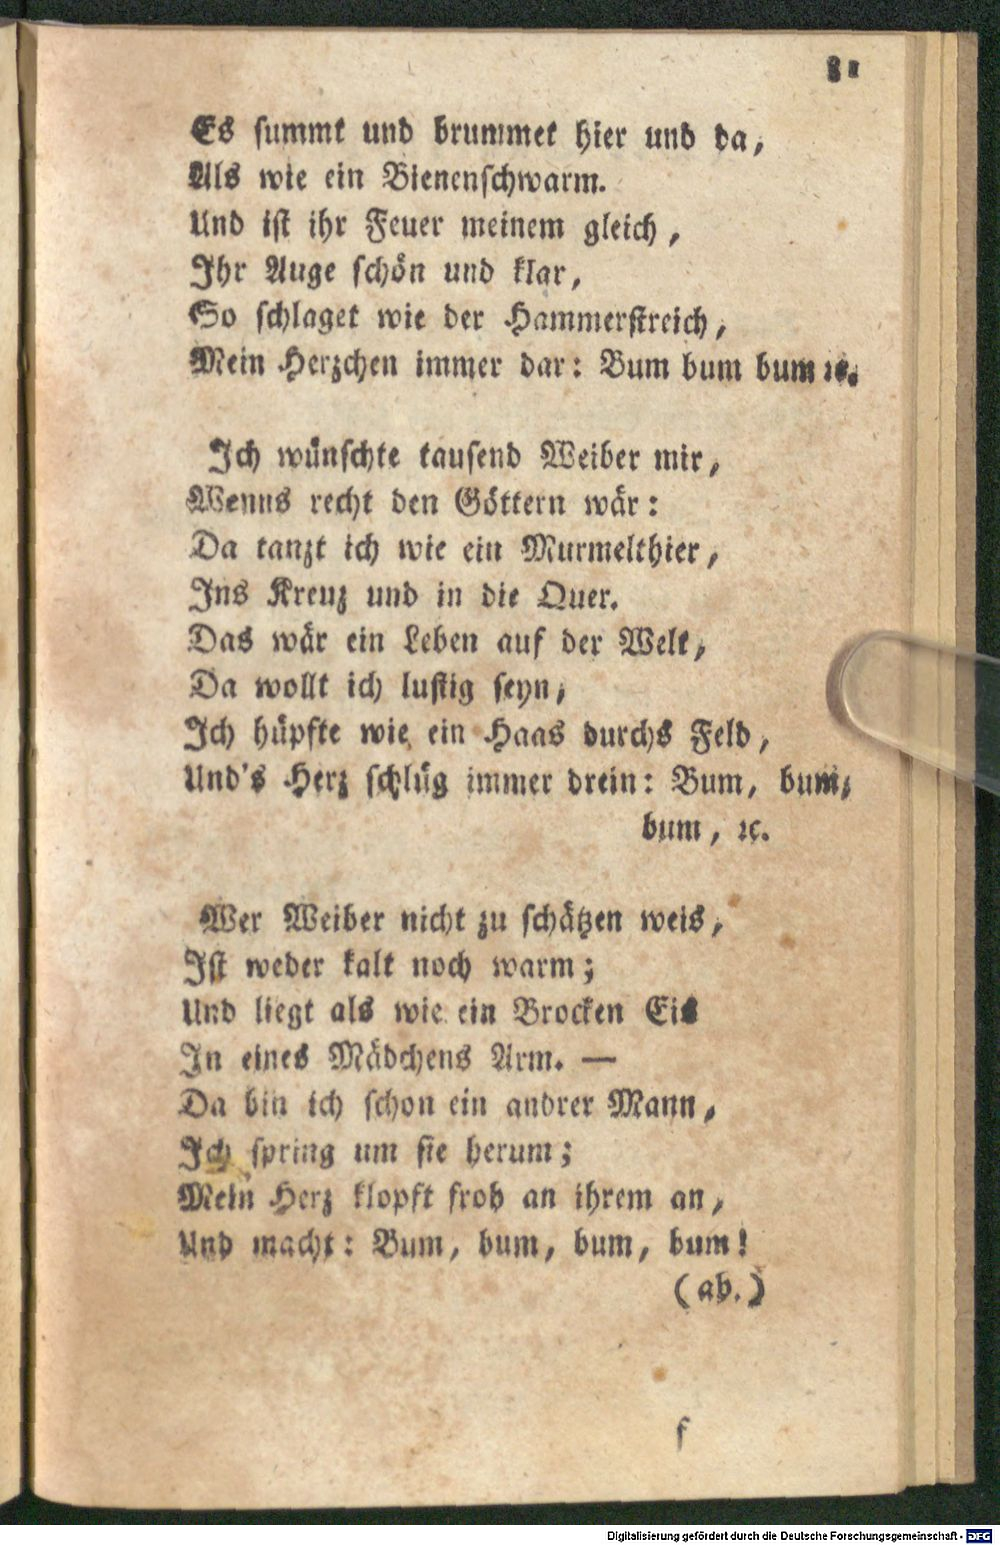 81
Es summt und brummet hier und da,
Als wie ein Bienenschwarm.
Und ist ihr Feuer meinem gleich,
Ihr Auge schön und klar,
So schlaget wie der Hammerstreich,
Mein Herzchen immer dar: Bum bum bum ꝛc.
Ich wünschte tausend Weiber mir,
Wenns recht den Göttern wär:
Da tanzt ich wie ein Murmelthier,
Ins Kreuz und in die Quer.
Das wär ein Leben auf der Welt,
Da wollt ich lustig seyn,
Ich hüpfte wie ein Haas durchs Feld,
Und's Herz schlüg immer drein: Bum, bum,
bum, ꝛc.
Wer Weiber nicht zu schätzen weis,
Ist weder kalt noch warm;
Und liegt als wie ein Brocken Eis
In eines Mädchens Arm. —
Da bin ich schon ein andrer Mann,
Ich spring um sie herum;
Mein Herz klopft froh an ihrem an,
Und macht: Bum, bum, bum, bum!
(ab.)
f
Digitalisierung gefördert durch die Deutsche Forschungsgemeinschaft - DFG